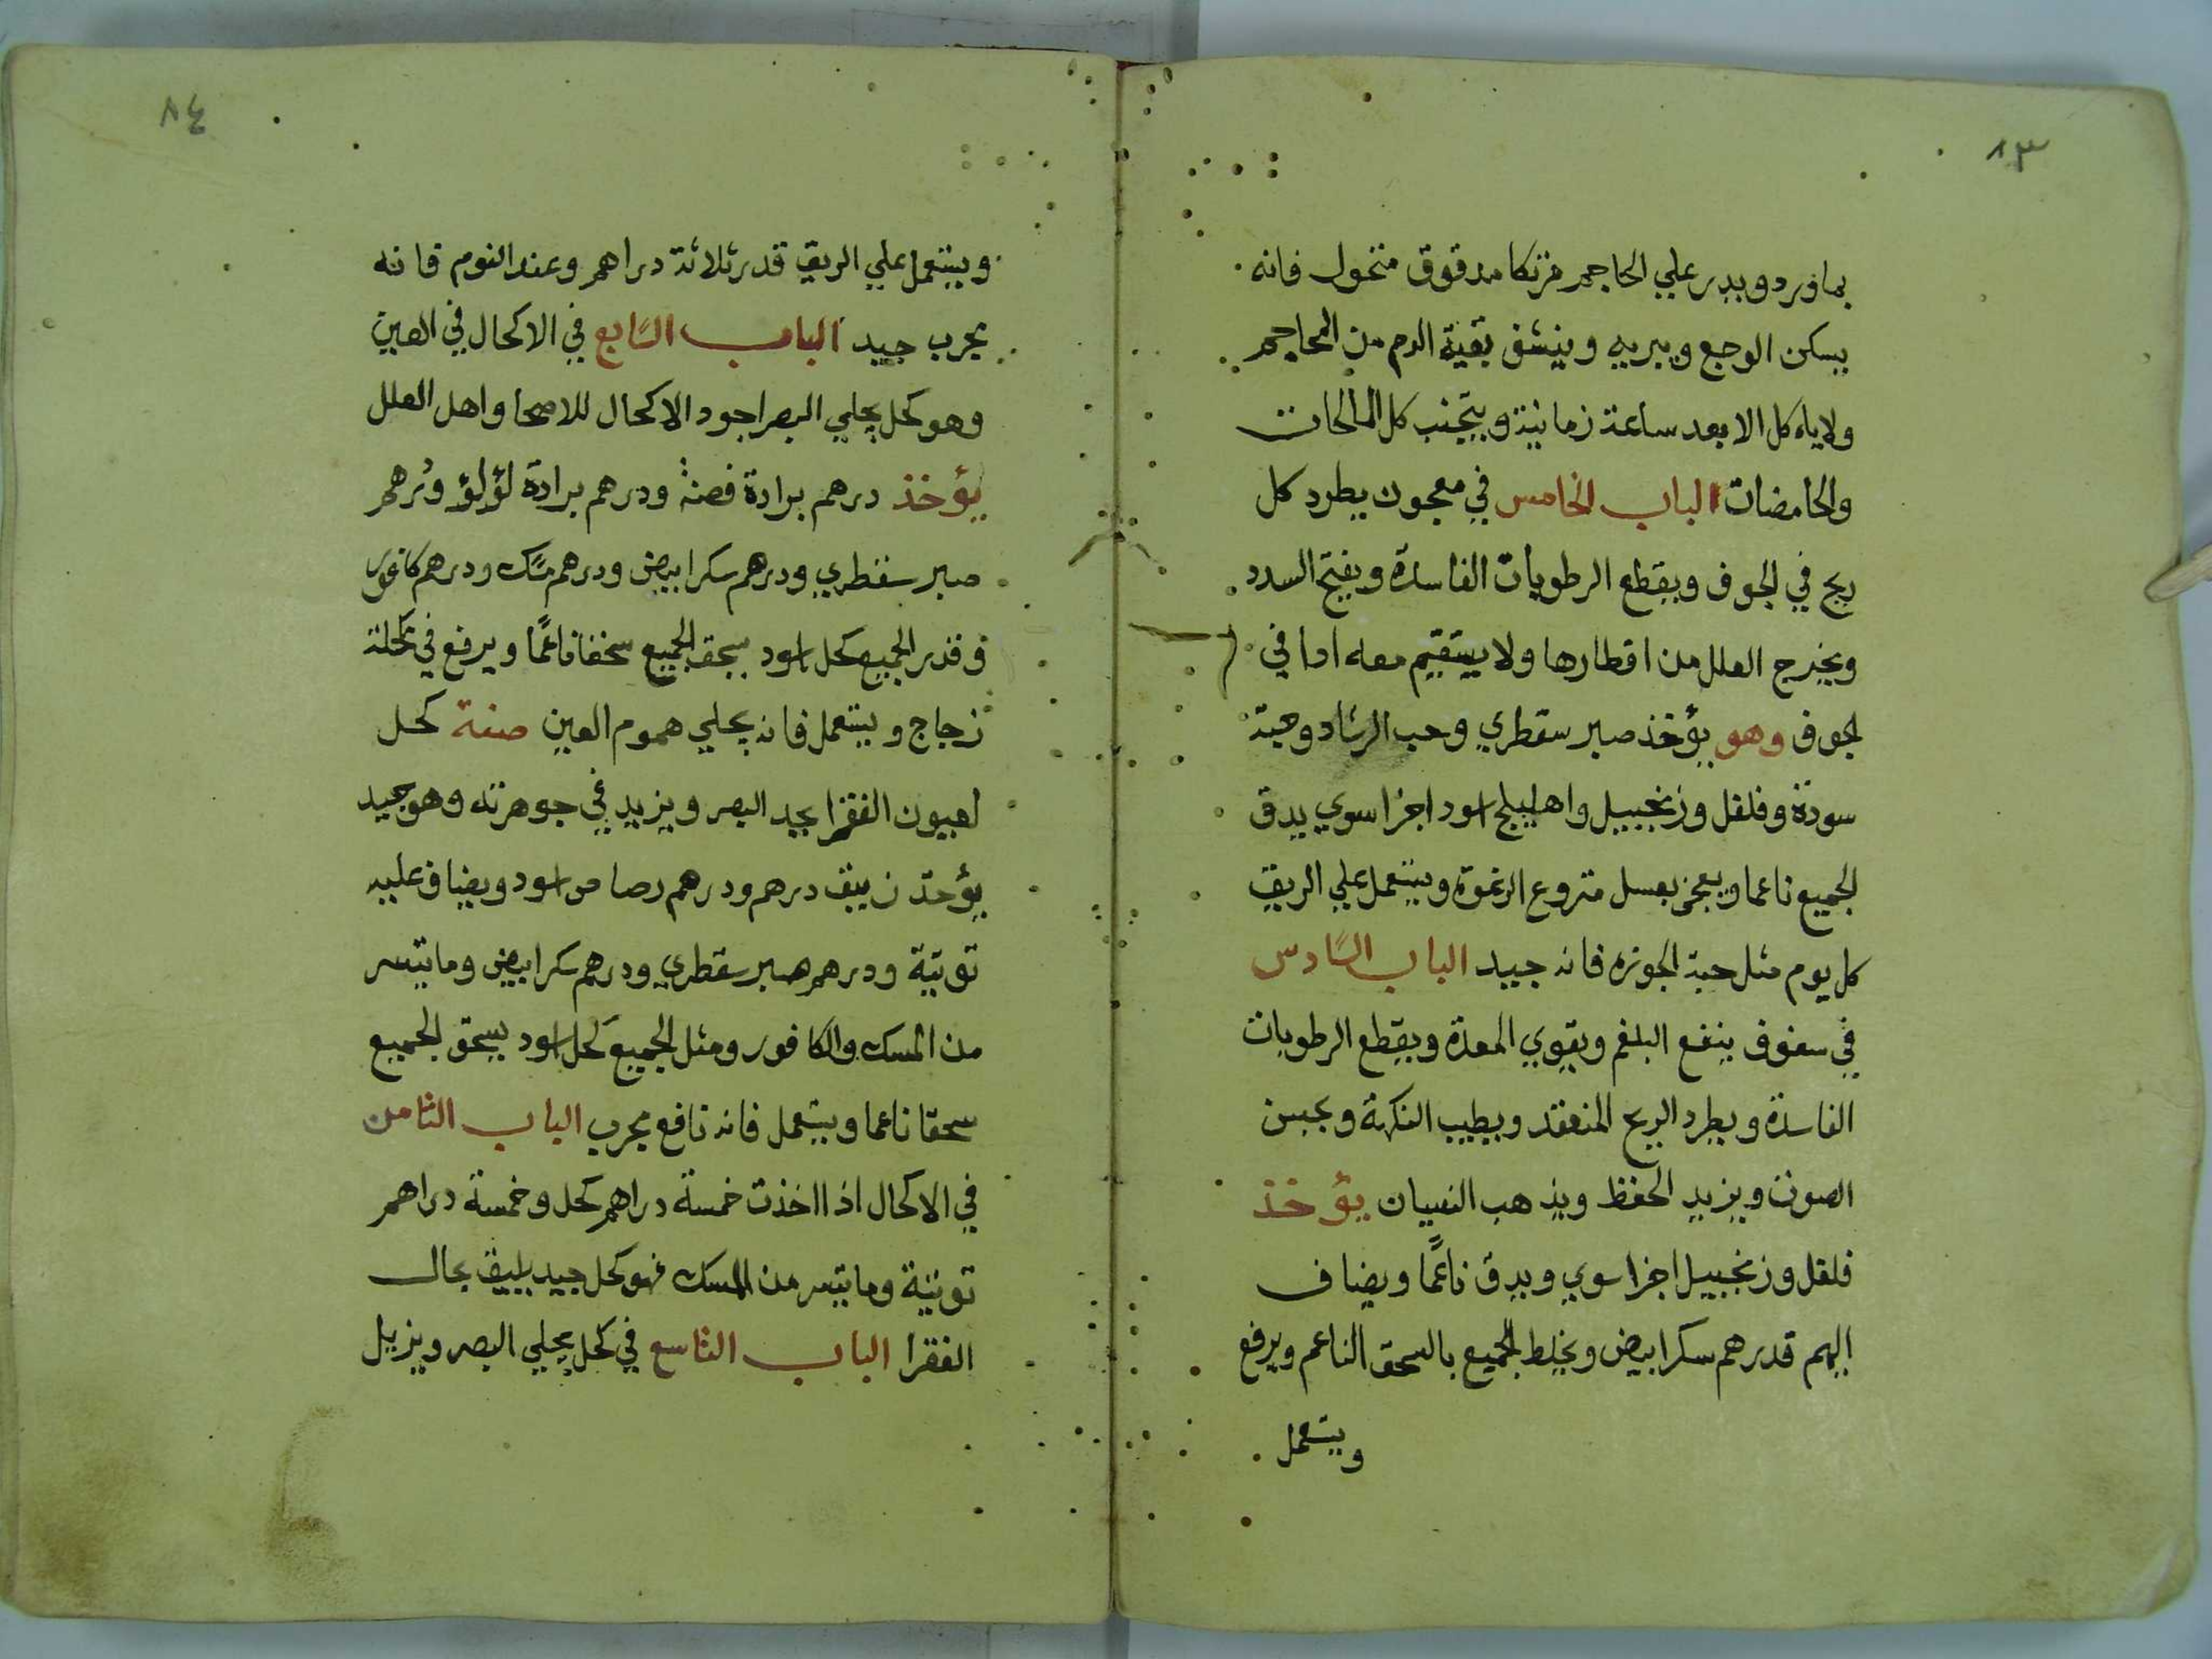 ٨٣
بماورد ويدر علي المحاجم مرتكا مدقوق منخول فانه
يسكن الوجع ويبريه وينشف بقية الدم من المحاجم
ولاياء كل الا بعد ساعة زمانية ويتجنب كل المالحات
والحامضات الباب الخامس في معجون يطرد كل
ريح في الجوف ويقطع الرطوبات الفاسدة ويفتح السدد
ويخرج العلل من اقطارها ولا يستقيم معه اذا في
لجوف وهو يؤخذ صبر سقطري وحب الرشاد وحبة
سودة وفلفل وزنجبيل واهليلج اسود اجزا سوي يدق
الجميع ناعما ويعجن بعسل منزوع الرغوة ويستعمل علي الريق
كل يوم مثل حبة الجوزه فانه جييد الباب السادس
في سفوف ينفع البلغم ويقوي المعدة ويقطع الرطوبات
الفاسدة ويطرد الريح المنعقد ويطيب النكهة ويحسن
الصوت ويزيد الحفظ ويذهب النسيان يؤخذ
فلفل وزنجبيل اجزا سوي ويدق ناعمًا ويضاف
اليهم قدرهم سكر ابيض ويخلط الجميع بالسحق الناعم ويرفع
ويستعمل
٨٤
ويستعمل علي الريق قدر ثلاثة دراهم وعند النوم فانه
مجرب جييد الباب السابع في الاكحال في العين
وهو كحل يجلي البصر اجود الاكحال للاصحا واهل العلل
يؤخذ درهم برادة فضة ودرهم برادة لؤلؤ ودرهم
صبر سقطري ودرهم سكر ابيض ودرهم مسك ودرهم كافور
وقدر الجميع كحل اسود يسحق الجميع سحقا ناعمًا ويرفع في مكحلة
زجاج ويستعمل فانه يجلي هموم العين صفة كحل
لعيون الفقرا يحد البصر ويزيد في جوهرته وهو جيد
يؤخذ زيبق درهم ودرهم رصاص اسود ويضاف عليه
توتية ودرهم صبر سقطري ودرهم سكر ابيض وما تيسر
من المسك والكافور ومثل الجميع كحل اسود يسحق الجميع
سحقا ناعما ويستعمل فانه نافع مجرب الباب الثامن
في الاكحال اذا اخذت خمسة دراهم كحل وخمسة دراهم
توتية وما تيسر من المسك فهو كحل جييد يليق بحال
الفقرا الباب التاسع في كحل يجلي البصر ويزيل